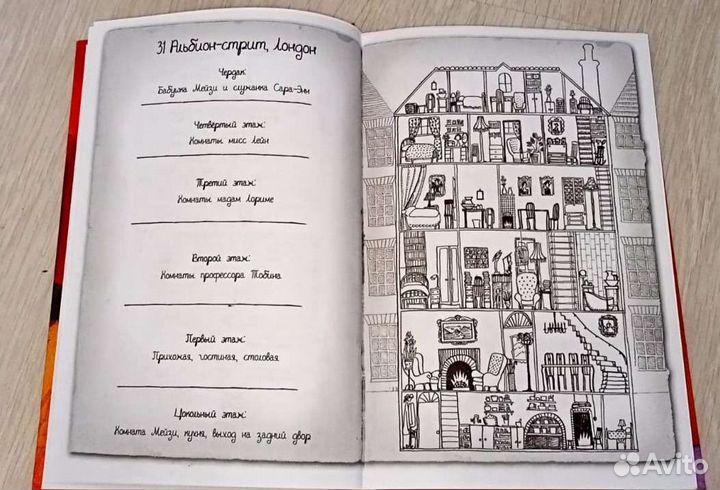 31 Альбион-стрит, Лондон
Чердак:
Бабушка Мейзи и служанка Сара-Энн
Четвёртый этаж:
Комнаты мисс Лейн
Третий этаж:
Комнаты мадам Лориме
Второй этаж:
Комнаты профессора Тобина
Первый этаж:
Прихожая, гостиная, столовая
Цокольный этаж:
Комната Мейзи, кухня, выход на задний двор
Avito